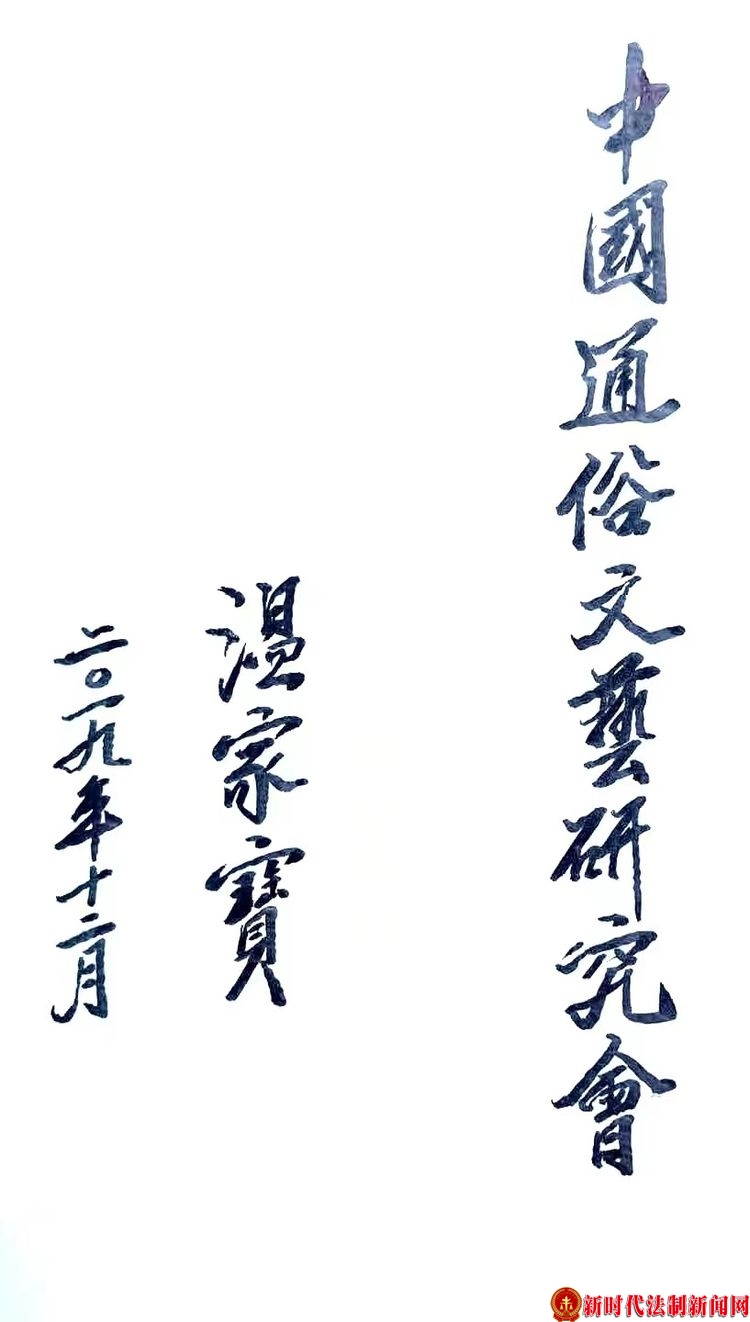 中國通俗文藝研究會
温家寶
二〇一九年十二月
新时代法制新闻网